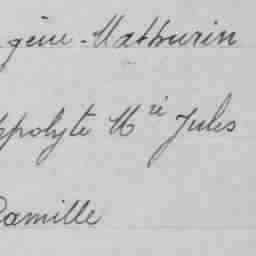 gène-Mathurin
ppolyte Mie Jules
Camille